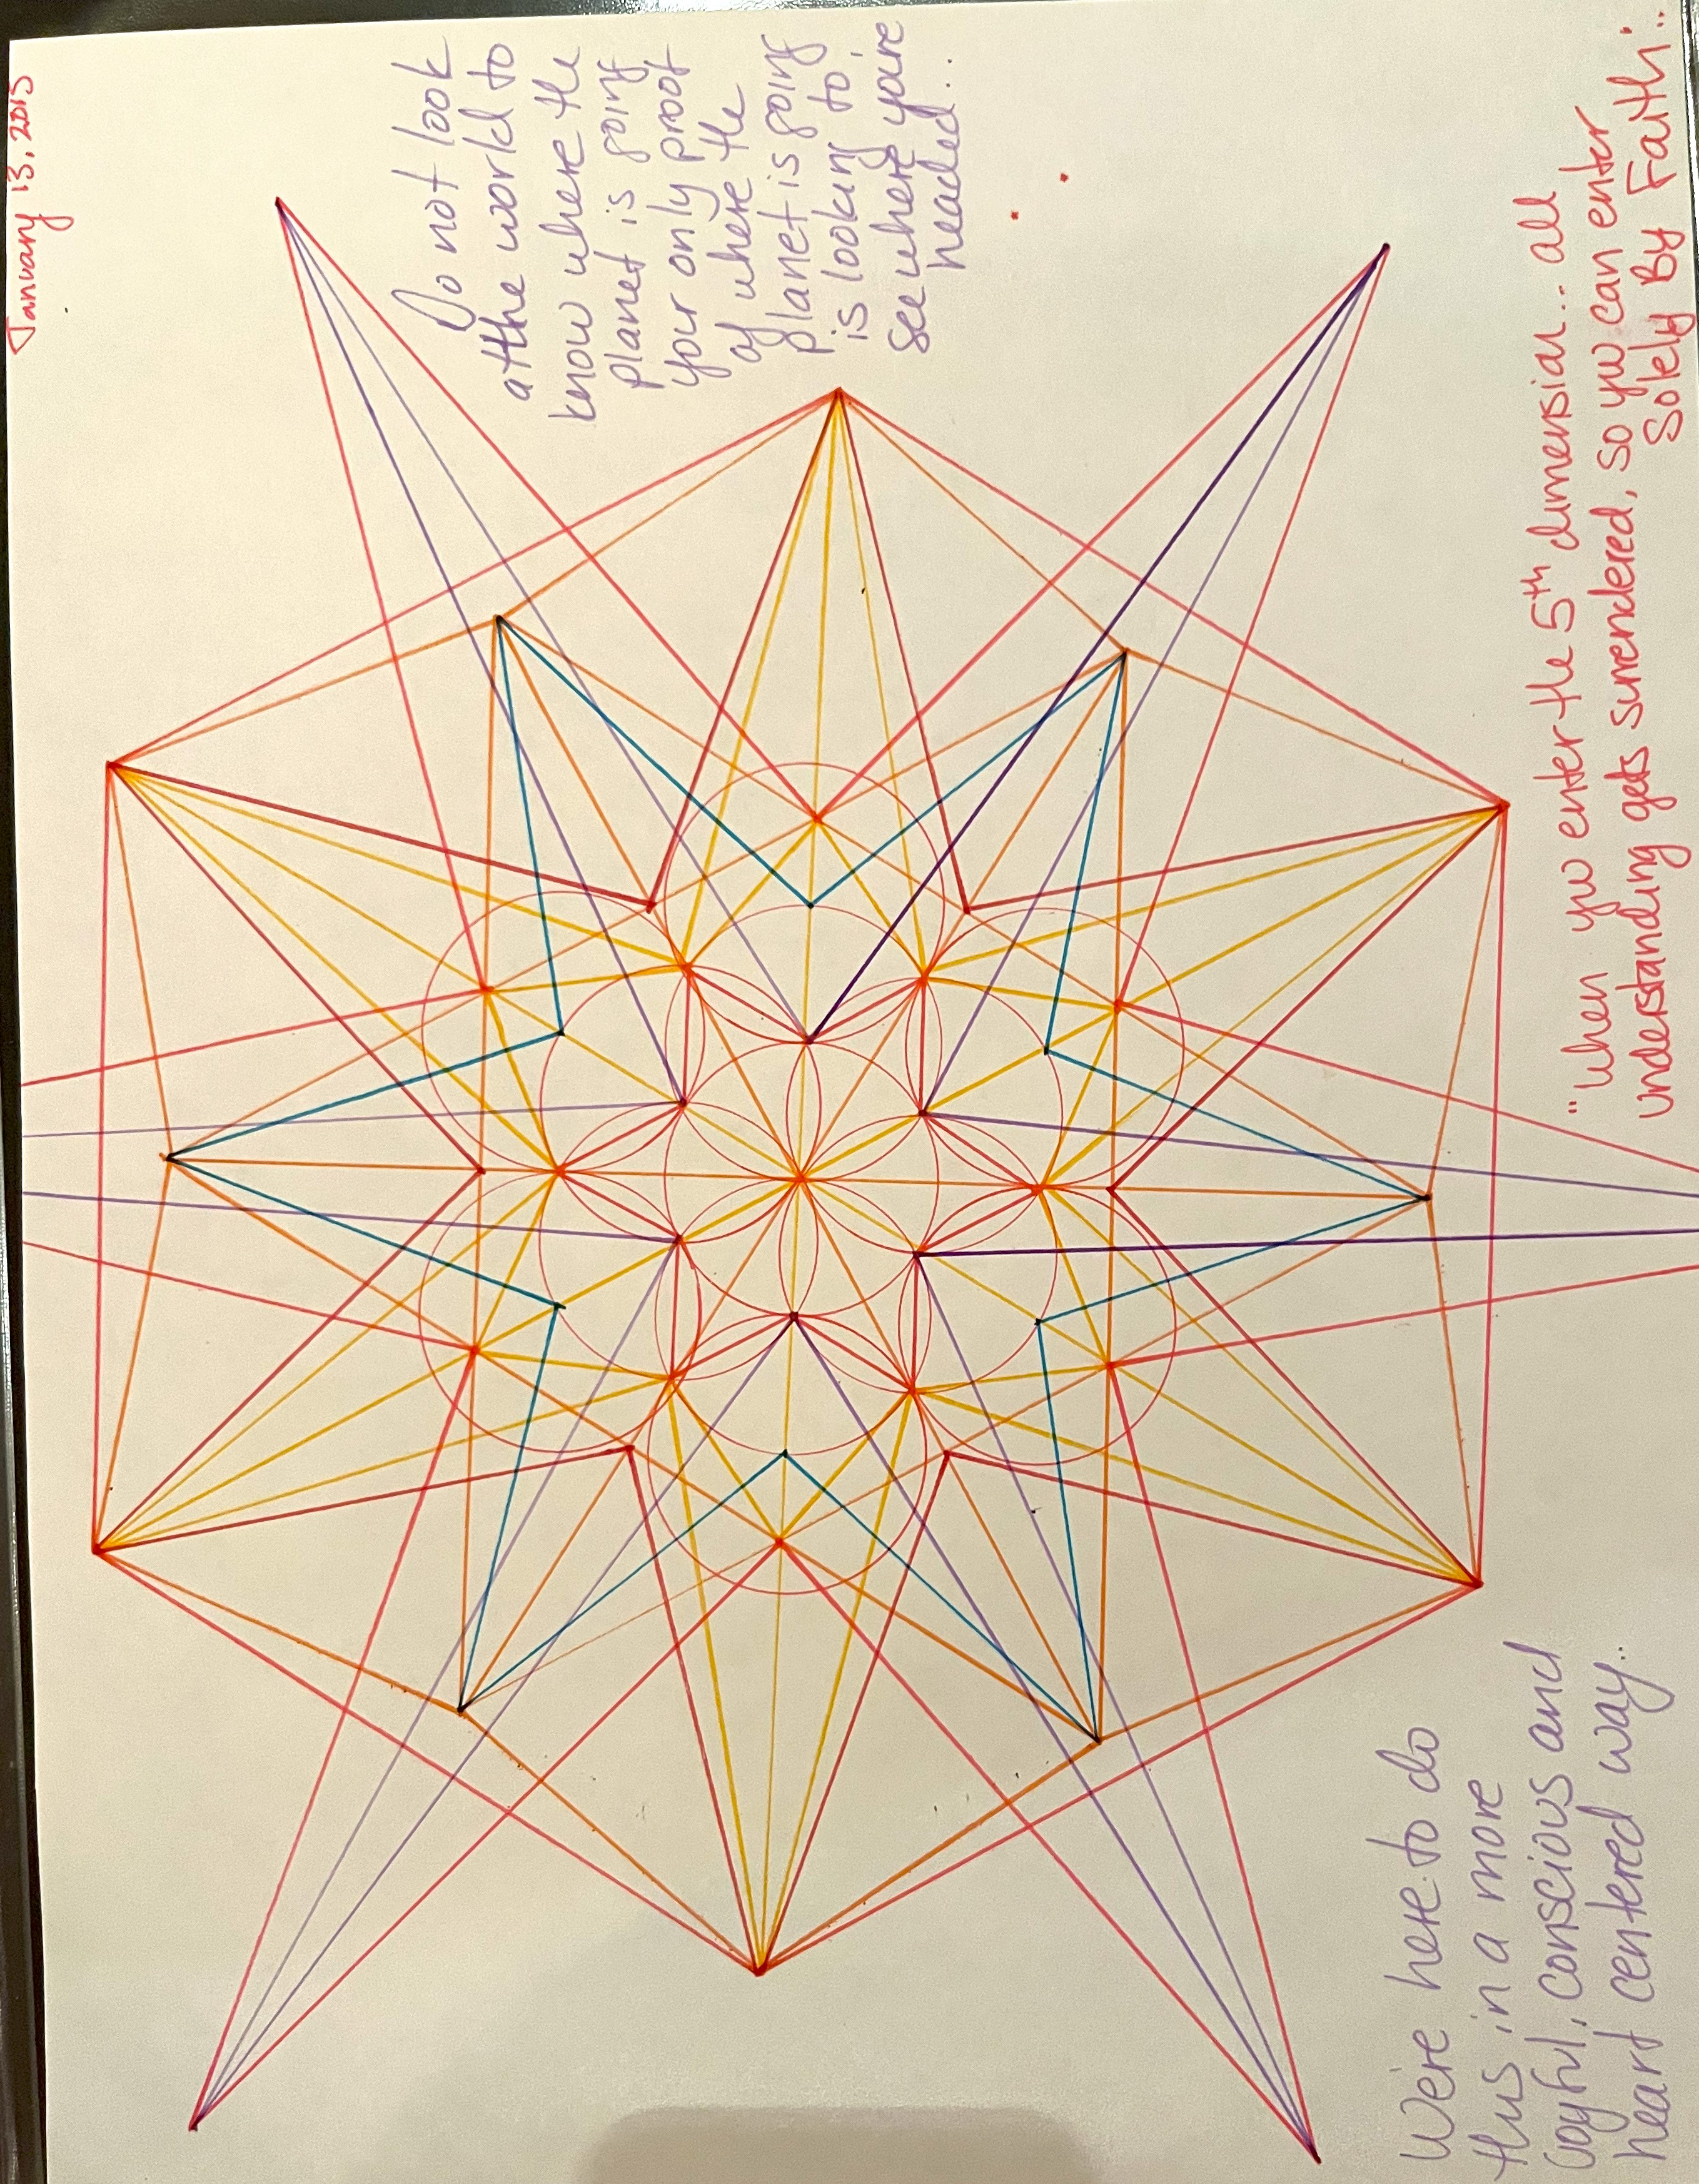 January 13, 2015
Do not look
at the world to
know where the
planet is going
your only proof
of where the
planet is going
is looking to
see where you're
headed..
"When you enter the 5th dimension.. all
understanding gets surrendered, so you can enter
Solely By Faith..
We're here to do
this in a more
joyful, conscious and
heart centered way..